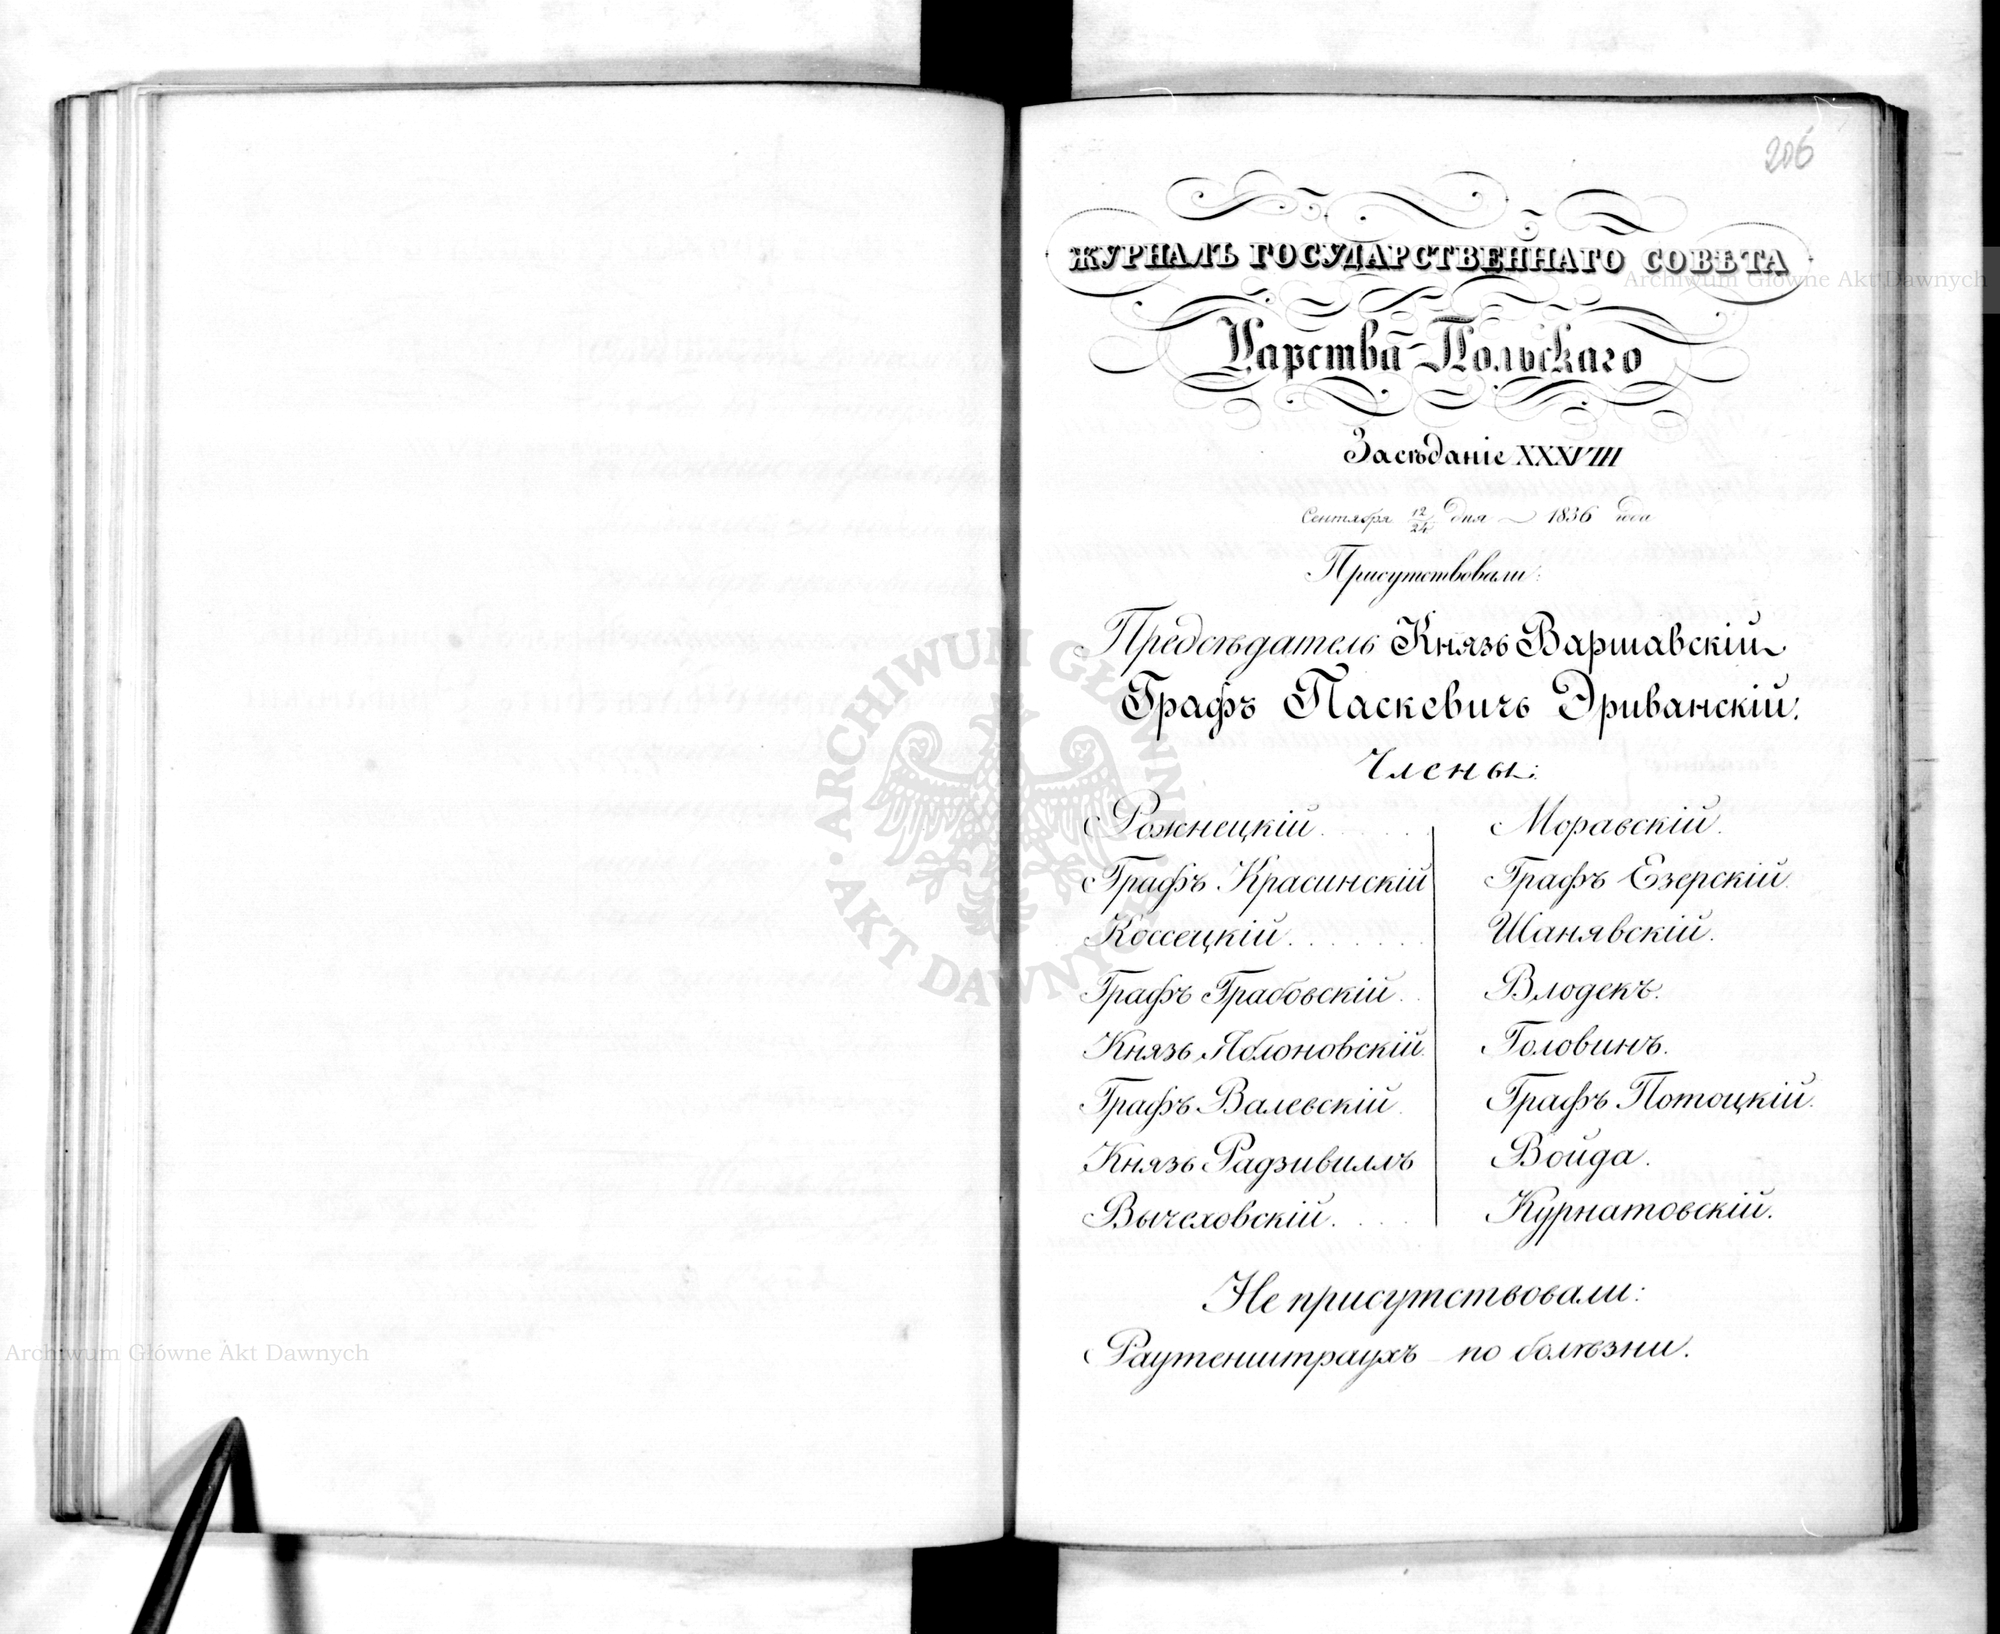 206
ЖУРНАЛЪ ГОСУДАРСТВЕННАГО СОВѢТА
Царства Польскаго
Засѣданіе XXXVIII
Сентября 12/24 дня 1836 года
Присутствовали:
Предсѣдатель Князь Варшавскій
Графъ Паскевичъ Эриванскій.
Члены:
Рожнецкій. Моравскій.
Графъ Красинскій Графъ Езерскій.
Коссецкій. Шанявскій.
Графъ Грабовскій. Влодекъ.
Князь Яблоновскій. Головинъ.
Графъ Валевскій. Графъ Потоцкій.
Князь Радзивиллъ Войда.
Вычеховскій. Курнатовскій.
Не присутствовали:
Раутенштраухъ по болѣзни.
ARCHIWUM GŁÓWNE
AKT DAWNYCH
Archiwum Główne Akt Dawnych
Archiwum Główne Akt Dawnych